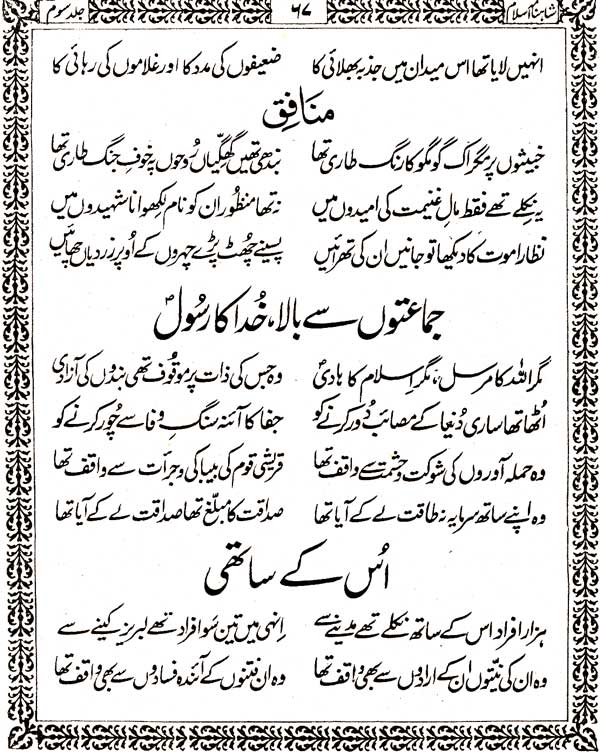 شاہنامۂ اسلام ۶۷ جلد سوم
انہیں لایا تھا اس میدان میں جذبہ بھلائی کا ضعیفوں کی مدد کا اور غلاموں کی رہائی کا
منافق
خبیثوں پر مگر اک گومگو کا رنگ طاری تھا بندھی تھیں گھگیاں رُوحوں پہ خوفِ جنگ طاری تھا
یہ نکلے تھے فقط مالِ غنیمت کی امیدوں میں نہ تھا منظُور ان کو نام لکھوانا شہیدوں میں
نظارا موت کا دیکھا تو جانیں ان کی تھرائیں پسینے چھُٹ پڑے چہروں کے اُوپر زردیاں چھائیں
جماعتوں سے بالا، خُدا کا رسُولؐ
مگر اللہ کا مرسل، مگر اسلام کا ہادیؐ وہ جس کی ذات پر موقُوف تھی بندُوں کی آزادی
اُٹھا تھا ساری دُنیا کے مصائب دُور کرنے کو جفا کا آئنہ سنگِ وفا سے چُور کرنے کو
وہ حملہ آوروں کی شوکت و حشمت سے واقف تھا قریشی قوم کی بیباکی و جرأت سے واقف تھا
وہ اپنے ساتھ سرمایہ نہ طاقت لے کے آیا تھا صداقت کا مبلّغ تھا صداقت لے کے آیا تھا
اُس کے ساتھی
ہزار افراد اس کے ساتھ نکلے تھے مدینے سے اِنہی میں تین سَو افراد تھے لبریز کینے سے
وہ ان کی نیّتوں ان کے ارادوں سے بھی واقف تھا وہ ان فتنوں کے آئندہ فسادوں سے بھی واقف تھا